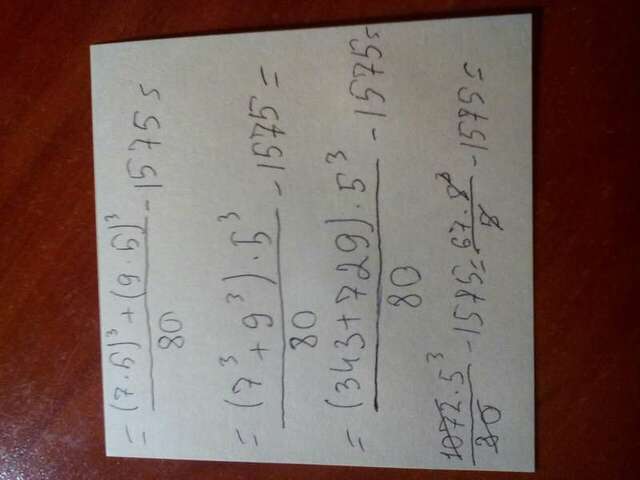 = (7·5)³ + (9·5)³ / 80 - 1575 =
= (7³ + 9³)·5³ / 80 - 1575 =
= (343 + 729)·5³ / 80 - 1575 =
1072·5³ / 80 - 1575 = 67·5³ / 5 - 1575 =